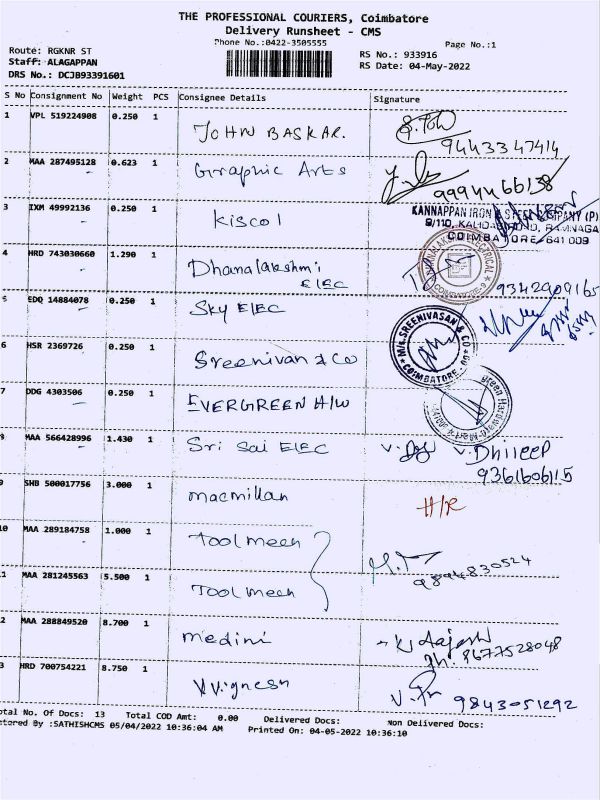 THE PROFESSIONAL COURIERS, Coimbatore
Delivery Runsheet - CMS
Phone No.:0422-3505555
Page No.:1
Route: RGKNR ST
RS No.: 933916
Staff: ALAGAPPAN
RS Date: 04-May-2022
DRS No.: DCJB93391601
S No Consignment No Weight PCS Consignee Details Signature
1 VPL 519224908 0.250 1 JOHN BASKAR.
9443347414
2 MAA 287495128 0.623 1 Graphic Arts
9994466138
3 IXM 49992136 0.250 1 Kiscol
KANNAPPAN IRON & STEEL COMPANY (P)
9/110, KALIDAS ROAD, RAMNAGA
COIMBATORE-641 009
4 HRD 743030660 1.290 1 Dhanalakshmi
ELEC
9342909165
5 EDQ 14884078 0.250 1 Sky ELEC
6 HSR 2369726 0.250 1 Sreenivan & Co
M/s.SREENIVASAN & CO
COIMBATORE
7 DDG 4303506 0.250 1 EVERGREEN H/W
8 MAA 566428996 1.430 1 Sri Sai ELEC
V. Dhileep
9361606115
9 SHB 500017756 3.000 1 macmillan
H/R
10 MAA 289184758 1.000 1 Tool meeh
9894830524
11 MAA 281245563 5.500 1 Tool meeh
2 MAA 288849520 8.700 1 medini
K Rajesh
Ph: 8677528048
3 HRD 700754221 8.750 1 Vignesh
9843051292
otal No. Of Docs: 13 Total COD Amt: 0.00 Delivered Docs: Non Delivered Docs:
ntered By :SATHISHCMS 05/04/2022 10:36:04 AM Printed On: 04-05-2022 10:36:10